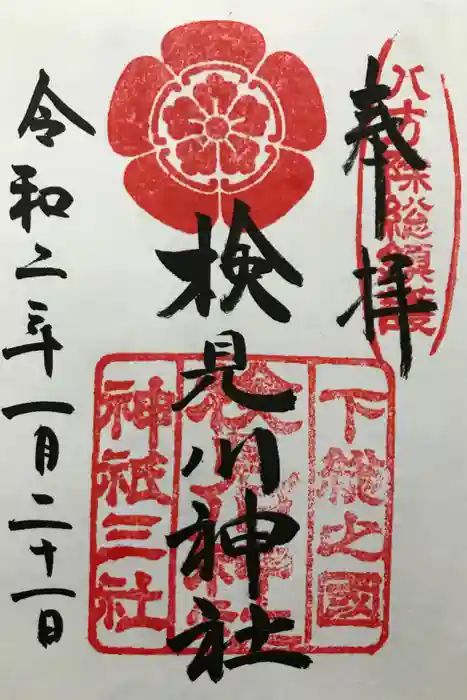 八方除総鎮護
奉拝
検見川神社
下総之國
神祇三社
令和二年一月二十一日